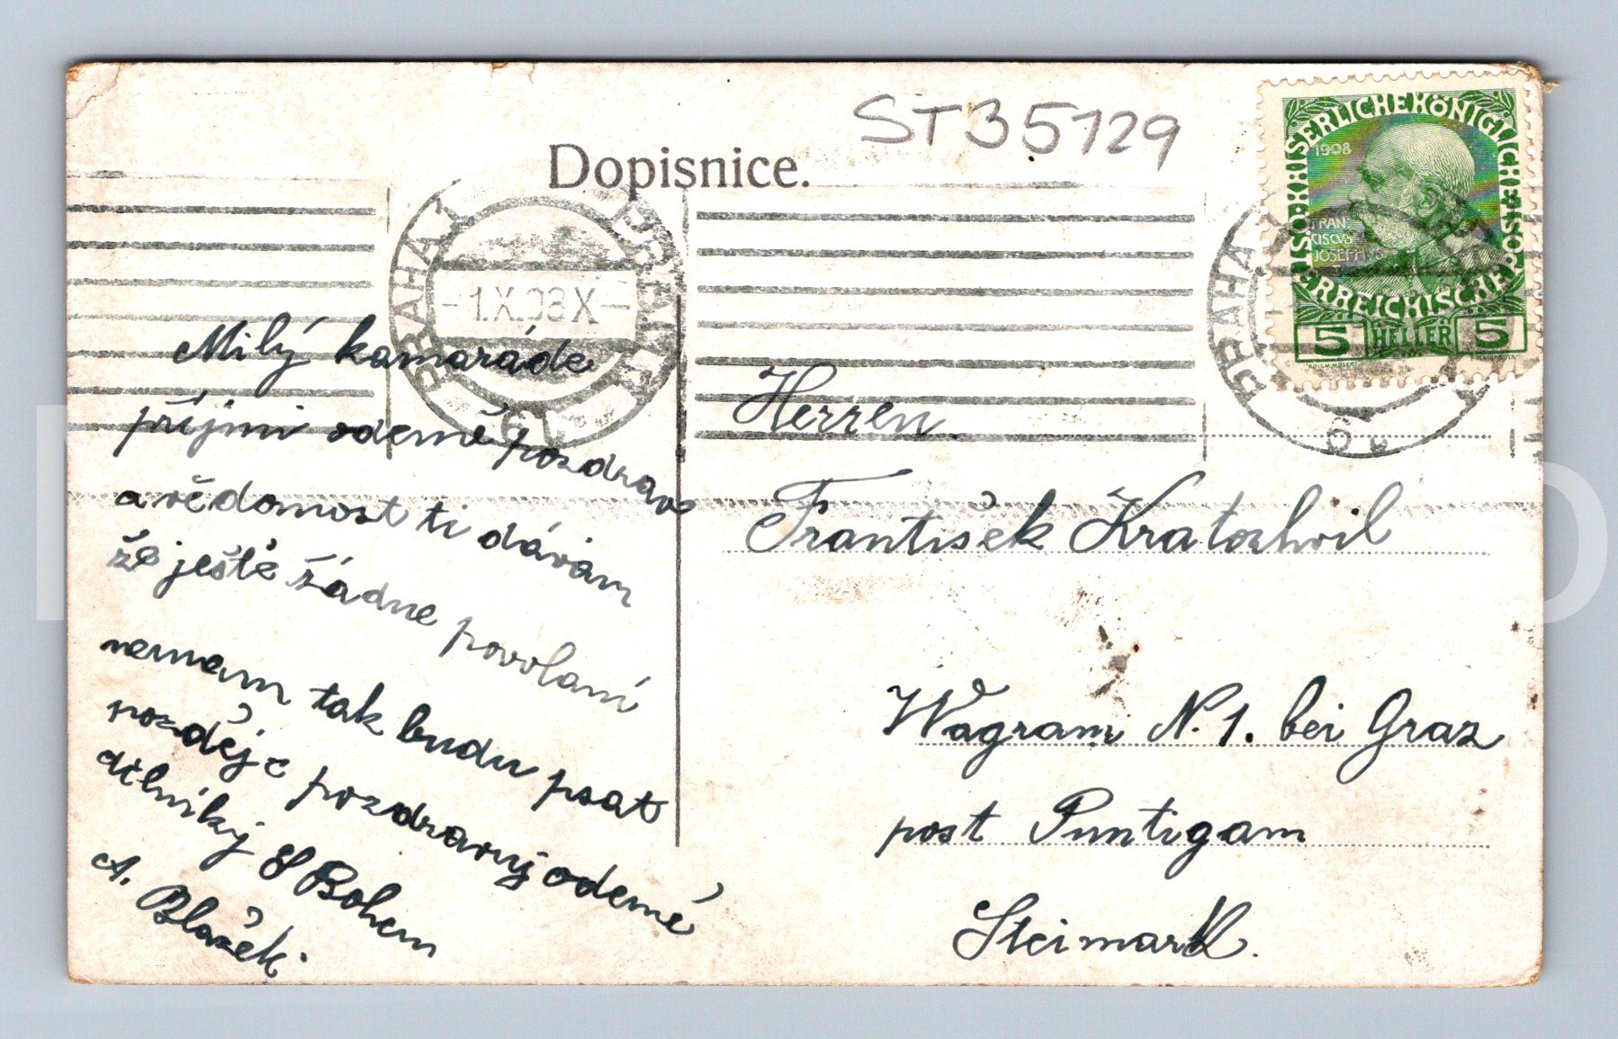 ST35729
Dopisnice.
PRAHA 1
1.X.08 X
PRAHA
KAISERLICHE KÖNIGLICHE ÖSTERREICHISCHE
1908
FRAN
CISCVS
JOSEPH
5 HELLER 5
Milý kamaráde
příjmi odemě pozdrav
a vědomost ti dávám
že ještě žádne povolaní
nemam tak budu psat
později pozdravuj odemě
dělníky S Bohem
A. Blažek.
Herren
František Kratochvil
Wagram N. 1. bei Graz
post Puntigam
Steimark.